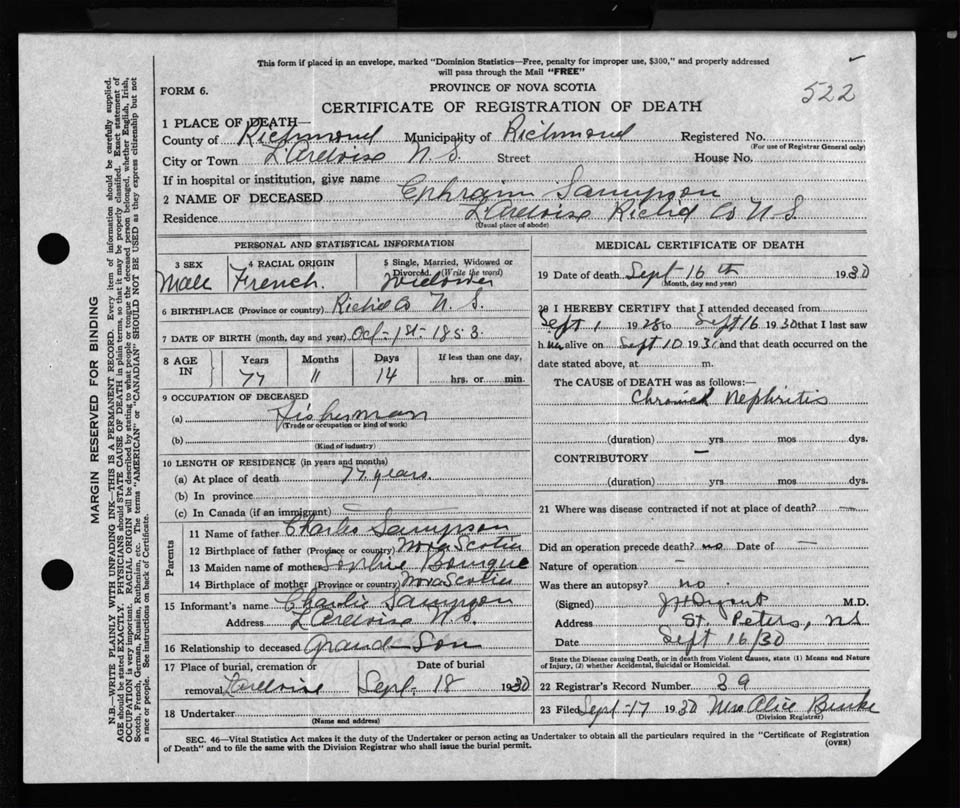 This form if placed in an envelope, marked "Dominion Statistics—Free, penalty for improper use, $300," and properly addressed
will pass through the Mail "FREE"
522
FORM 6.
PROVINCE OF NOVA SCOTIA
CERTIFICATE OF REGISTRATION OF DEATH
1 PLACE OF DEATH—
County of Richmond Municipality of Richmond Registered No.
(For use of Registrar General only)
City or Town L'Ardoise N.S. Street House No.
If in hospital or institution, give name
2 NAME OF DECEASED Ephraim Sampson
Residence L'Ardoise Richd Co N.S.
(Usual place of abode)
PERSONAL AND STATISTICAL INFORMATION
3 SEX 4 RACIAL ORIGIN 5 Single, Married, Widowed or
Divorced. (Write the word)
Male French. Widower
6 BIRTHPLACE (Province or country) Richd Co N.S.
7 DATE OF BIRTH (month, day and year) Oct-1st-1853.
8 AGE IN Years Months Days If less than one day,
77 11 14 hrs. or min.
9 OCCUPATION OF DECEASED
(a) Fisherman
(Trade or occupation or kind of work)
(b)
(Kind of industry)
10 LENGTH OF RESIDENCE (in years and months)
(a) At place of death 77 years.
(b) In province
(c) In Canada (if an immigrant)
Parents
11 Name of father Charles Sampson
12 Birthplace of father (Province or country) Nova Scotia
13 Maiden name of mother Sophie
14 Birthplace of mother (Province or country) Nova Scotia
15 Informant's name Charlie Sampson
Address L'Ardoise N.S.
16 Relationship to deceased Grand-Son
17 Place of burial, cremation or Date of burial
removal L'Ardoise Sept. 18 1930
18 Undertaker
(Name and address)
MEDICAL CERTIFICATE OF DEATH
19 Date of death Sept 16th 1930
(Month, day and year)
20 I HEREBY CERTIFY that I attended deceased from
Sept 1 1928 to Sept 16 1930 that I last saw
h im alive on Sept 10 1930 and that death occurred on the
date stated above, at m.
The CAUSE of DEATH was as follows:—
Chronic Nephritis
(duration) yrs mos dys.
CONTRIBUTORY —
(duration) yrs mos dys.
21 Where was disease contracted if not at place of death? —
Did an operation precede death? no Date of —
Nature of operation —
Was there an autopsy? no
(Signed) M.D.
Address St. Peters, NS
Date Sept 16/30
State the Disease causing Death, or in death from Violent Causes, state (1) Means and Nature
of Injury, (2) whether Accidental, Suicidal or Homicidal.
22 Registrar's Record Number 39
23 Filed Sept-17 1930 Mrs Alice Burke
(Division Registrar)
SEC. 46—Vital Statistics Act makes it the duty of the Undertaker or person acting as Undertaker to obtain all the particulars required in the "Certificate of Registration
of Death" and to file the same with the Division Registrar who shall issue the burial permit.
(OVER)
MARGIN RESERVED FOR BINDING
N.B.—WRITE PLAINLY WITH UNFADING INK—THIS IS A PERMANENT RECORD. Every item of information should be carefully supplied.
AGE should be stated EXACTLY. PHYSICIANS should STATE CAUSE OF DEATH in plain terms, so that it may be properly classified. Exact statement of
OCCUPATION is very important. RACIAL ORIGIN will be described by stating to what people or tongue the deceased person belonged, whether English, Irish,
Scotch, French, German, Russian, Ruthenian, etc. The terms "AMERICAN" or "CANADIAN" SHOULD NOT BE USED as they express citizenship but not
a race or people. See instructions on back of Certificate.